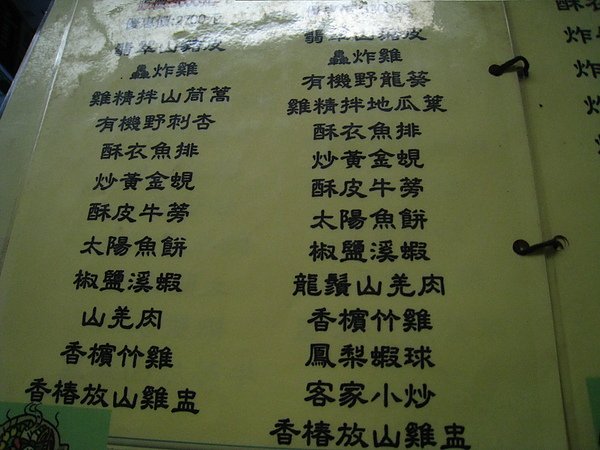 翡翠山豬皮
驫炸雞
雞精拌山茼蒿
有機野刺杏
酥衣魚排
炒黃金蜆
酥皮牛蒡
太陽魚餅
椒鹽溪蝦
山羌肉
香檳竹雞
香椿放山雞盅
翡翠山豬皮
驫炸雞
有機野龍葵
雞精拌地瓜葉
酥衣魚排
炒黃金蜆
酥皮牛蒡
太陽魚餅
椒鹽溪蝦
龍鬚山羌肉
香檳竹雞
鳳梨蝦球
客家小炒
香椿放山雞盅